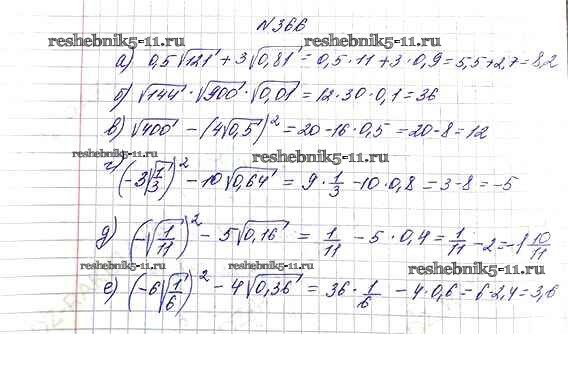 №366
reshebnik5-11.ru reshebnik5-11.ru
а) 0,5√121 + 3√0,81 = 0,5·11 + 3·0,9 = 5,5 + 2,7 = 8,2
б) √144 · √900 · √0,01 = 12·30·0,1 = 36
reshebnik5-11.ru reshebnik5-11.ru
в) √400 − (4√0,5)² = 20 − 16·0,5 = 20 − 8 = 12
reshebnik5-11.ru reshebnik5-11.ru
г) (−3√1/3)² − 10√0,64 = 9·1/3 − 10·0,8 = 3 − 8 = −5
reshebnik5-11.ru reshebnik5-11.ru
д) (−√1/11)² − 5√0,16 = 1/11 − 5·0,4 = 1/11 − 2 = −1 10/11
reshebnik5-11.ru reshebnik5-11.ru reshebnik5-11.ru
е) (−6√1/6)² − 4√0,36 = 36·1/6 − 4·0,6 = 6 − 2,4 = 3,6